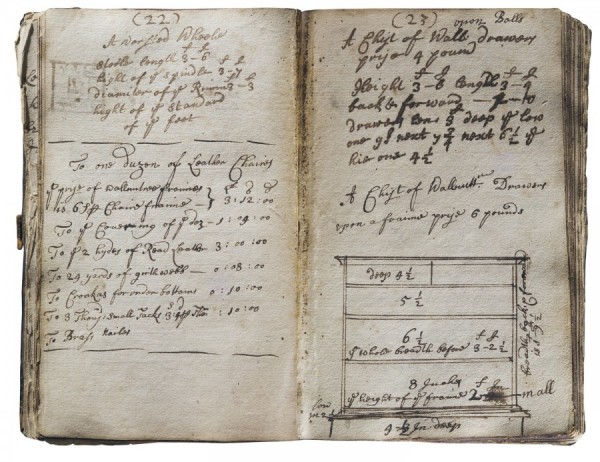 (22)
A worsted Wheele
steele length 3-6
hight of ye spindle 3-
diameter of ye 3-3
hight of ye standard
of ye feet
To one duzen of Leather Chaires
ye pryse of wallnuttree frames
is 6s pr Chaire frame 3:12:00
To ye Covering of ye doz - 1:04:00
To ye 2 hydes of Read Leather 3:00:00
To 24 yards of girthwebb - 0:08:00
To Crookas for under bottoms 0:10:00
To 3 Thous: small Tacks 1:10:00
To Brass Nailes
(23) upon Balls
A Chist of Wall: drawers
pryse 4 pound
Height 3-6 length 3-4
back & forward - 1-10
drawers deep ye low
one 9 next 7 next 6 1/2 ye
hie one 4 1/2
A Chist of Wallnutt Drawers
upon a frame pryse 6 pounds
deep 4 1/2
5 1/2
6 1/2
ye whole breadth before 3-2 1/2
8 Inches
ye height of ye frame 2 in all
9 1/2 In deep